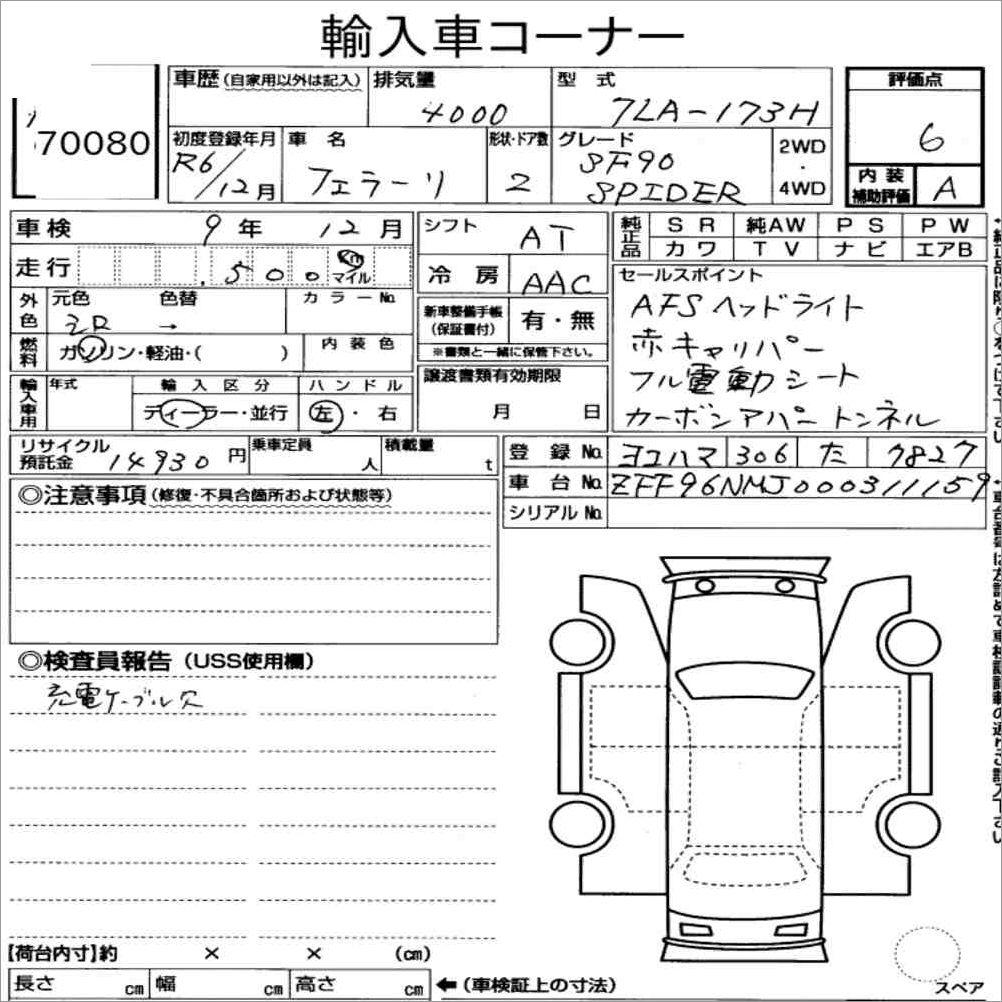 輸入車コーナー
70080
車歴 (自家用以外は記入)
排気量
4000
型式
7LA-173H
評価点
6
初度登録年月
R6/12月
車名
フェラーリ
形状・ドア数
2
グレード
SF90
SPIDER
2WD
・
4WD
内装
補助評価
A
車検 9年 12月
走行 .500 km マイル
外色
元色
色替
→
カラーNo.
燃料
ガソリン・軽油・( )
内装色
輸入車用
年式
輸入区分
ディーラー・並行
ハンドル
左・右
シフト
AT
冷房
AAC
新車整備手帳
(保証書付)
有・無
※書類と一緒に保管下さい。
譲渡書類有効期限
月 日
純正品
SR 純AW PS PW
カワ TV ナビ エアB
セールスポイント
AFSヘッドライト
赤キャリパー
フル電動シート
カーボンアパートンネル
リサイクル
預託金
14930円
乗車定員
人
積載量
t
登録No.
ヨコハマ 306 た 7827
車台No.
ZFF96NMJ000311159
シリアルNo.
◎注意事項(修復・不具合箇所および状態等)
◎検査員報告(USS使用欄)
充電ケーブル欠
【荷台内寸】約 × × (cm)
長さ cm 幅 cm 高さ cm
←(車検証上の寸法)
スペア